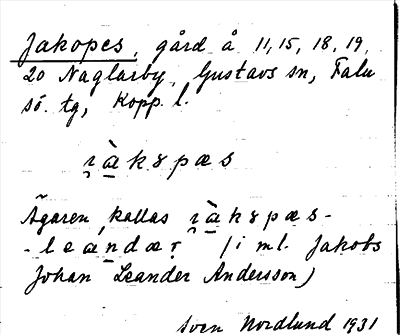 Jakopes, gård å 11, 15, 18, 19,
20 Naglarby, Gustavs sn, Falu
sö. tg, Kopp. l.
ɿàkȣpæs
Ägaren kallas ɿàkȣpæs-
-leandær (i ml. Jakobs
Johan Leander Andersson)
Sven Nordlund 1931